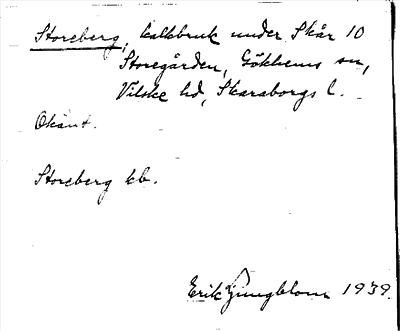 Storeberg, kalkbruk under Skår 10
Storegården, Gökhems sn,
Vilske hd, Skaraborgs l.
Okänt.
Storeberg kb.
Erik Ljungblom 1939.